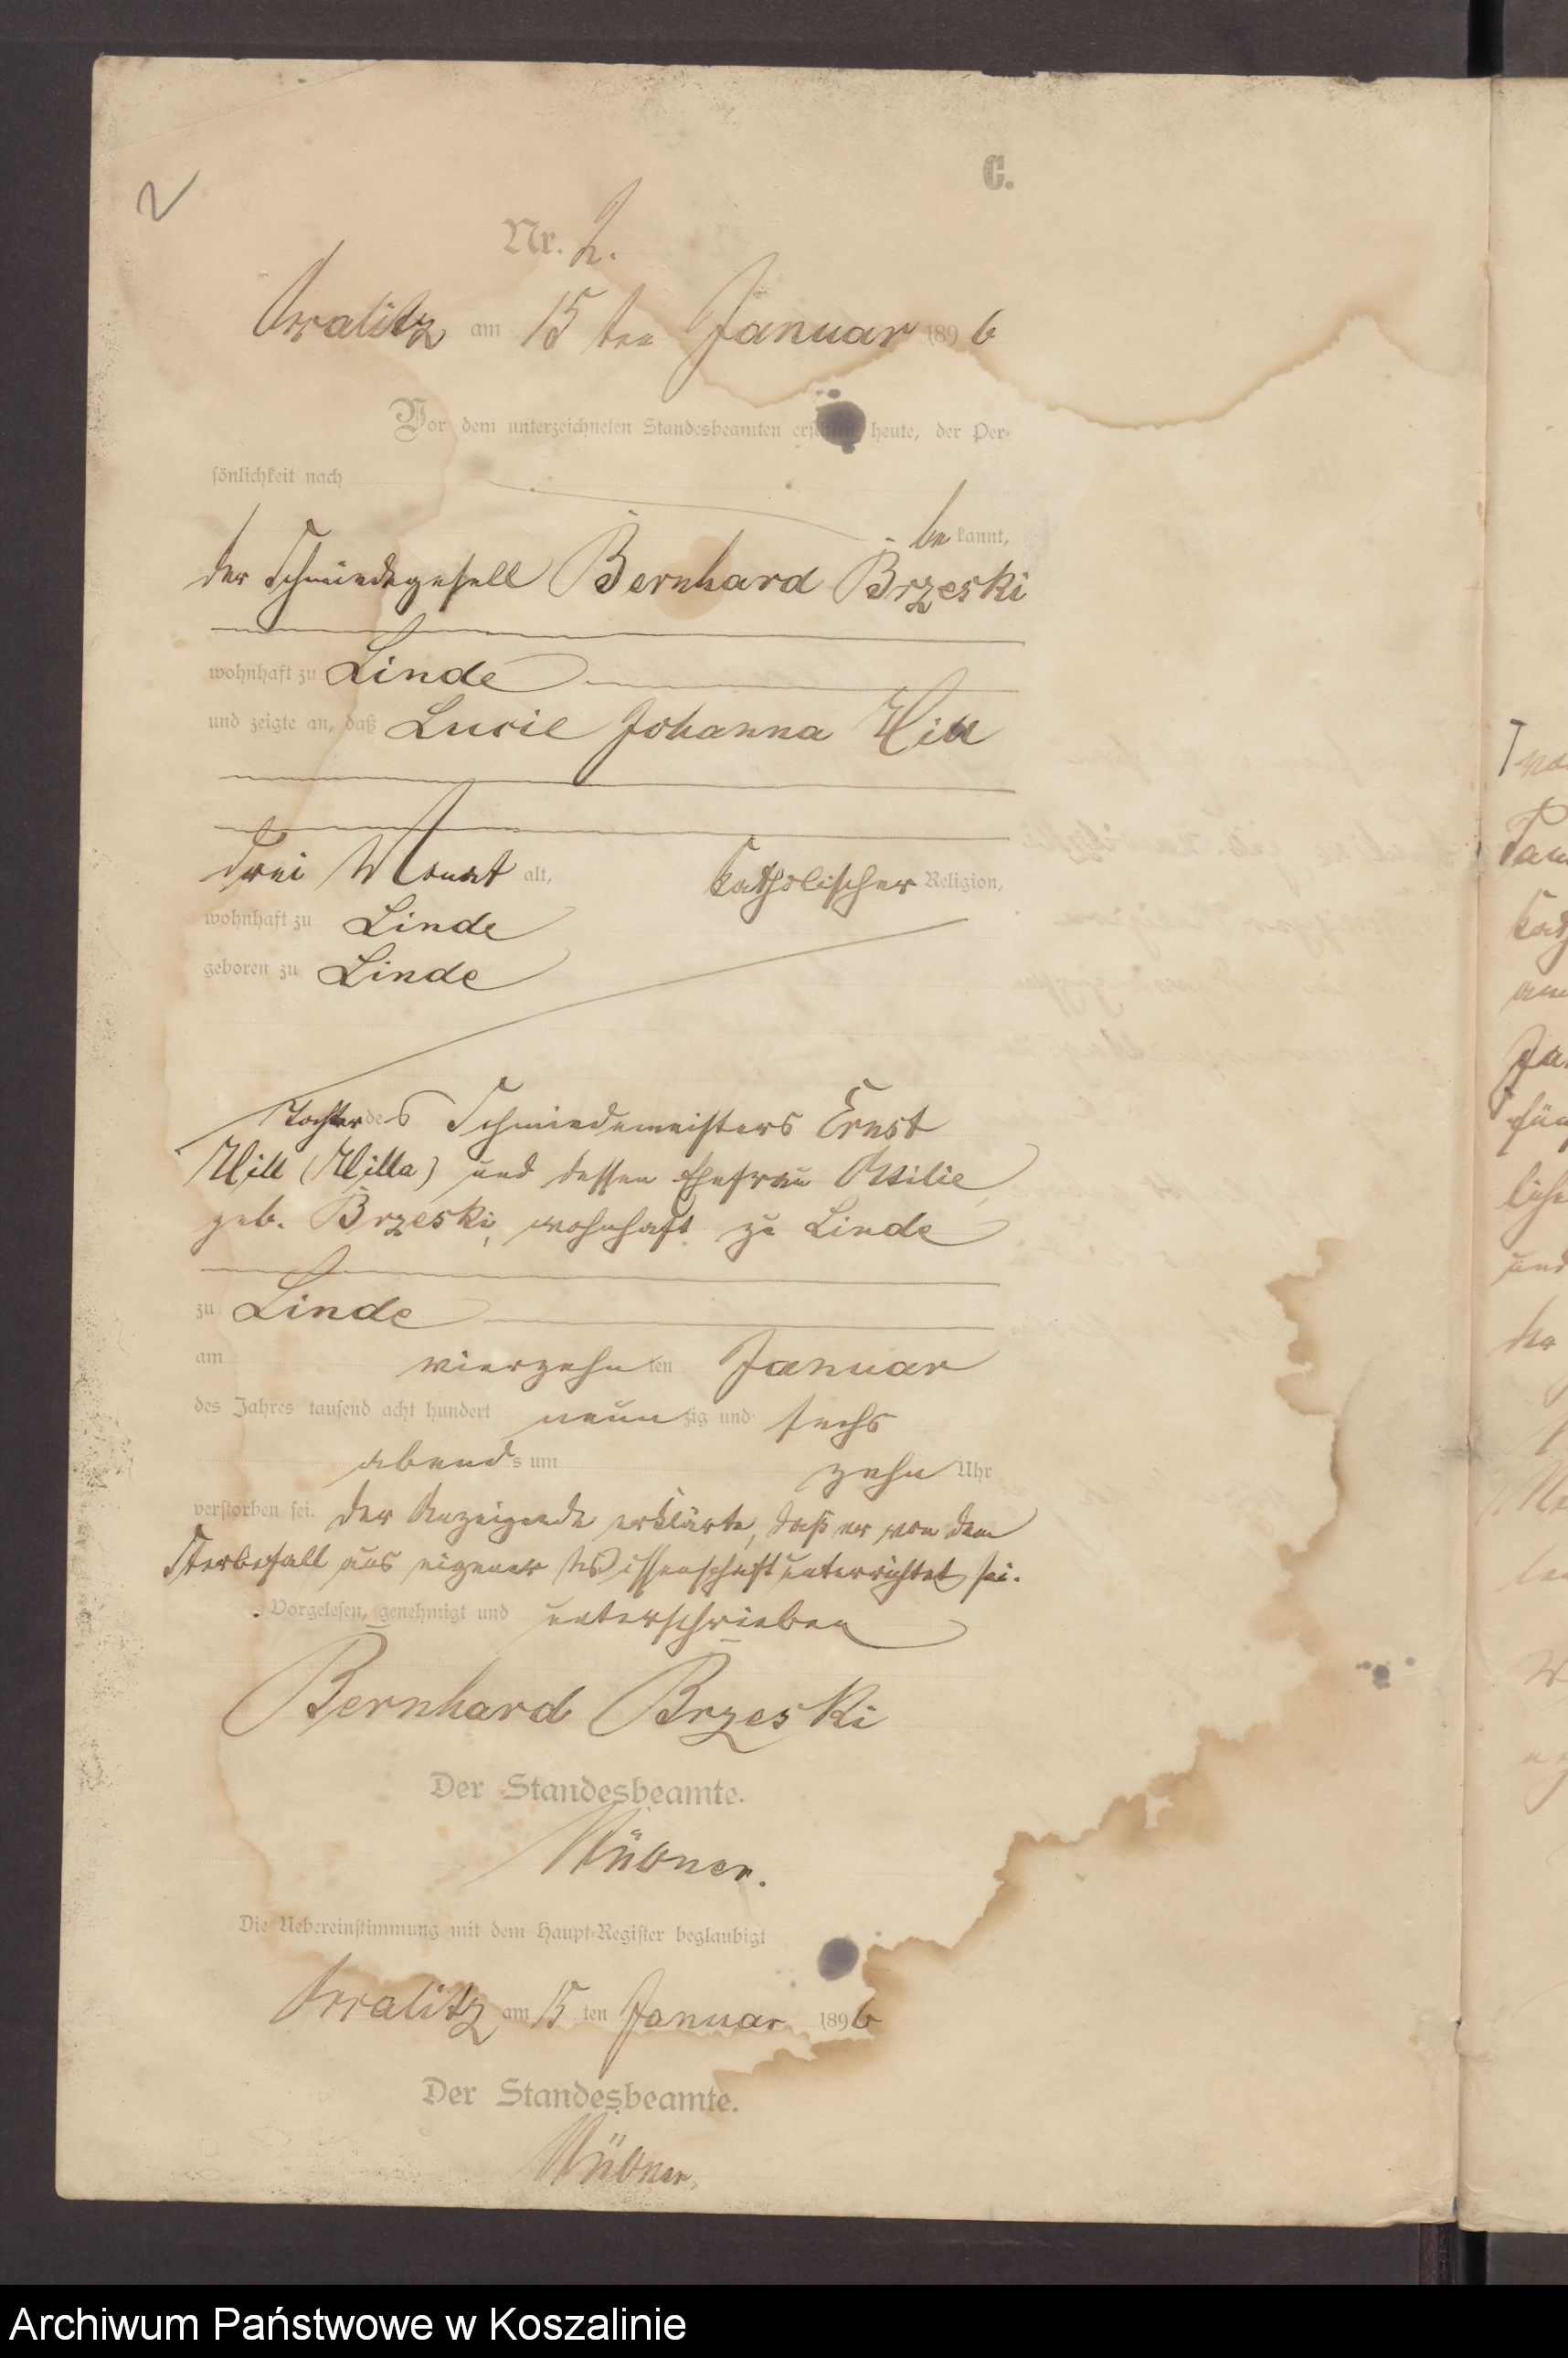 2
C.
Nr. 2.
am 15ten Januar 1896
Vor dem unterzeichneten Standesbeamten erschien heute, der Per-
sönlichkeit nach
bekannt,
der Schmiedegesell Bernhard Brzeski
wohnhaft zu Linde
und zeigte an, daß Lucie Johanna Will
drei Monat alt, katholischer Religion,
wohnhaft zu Linde
geboren zu Linde
Tochter des Schmiedemeisters Ernst
Will (Willa) und dessen Ehefrau Ottilie
geb. Brzeski, wohnhaft zu Linde
zu Linde
am vierzehnten Januar
des Jahres tausend acht hundert neunzig und sechs
abends um zehn Uhr
verstorben sei. Der Anzeigende erklärte, daß er von dem
Sterbefall aus eigener Wissenschaft unterrichtet sei.
Vorgelesen, genehmigt und unterschrieben
Bernhard Brzeski
Der Standesbeamte.
Die Uebereinstimmung mit dem Haupt-Register beglaubigt
am 15ten Januar 1896
Der Standesbeamte.
Archiwum Państwowe w Koszalinie